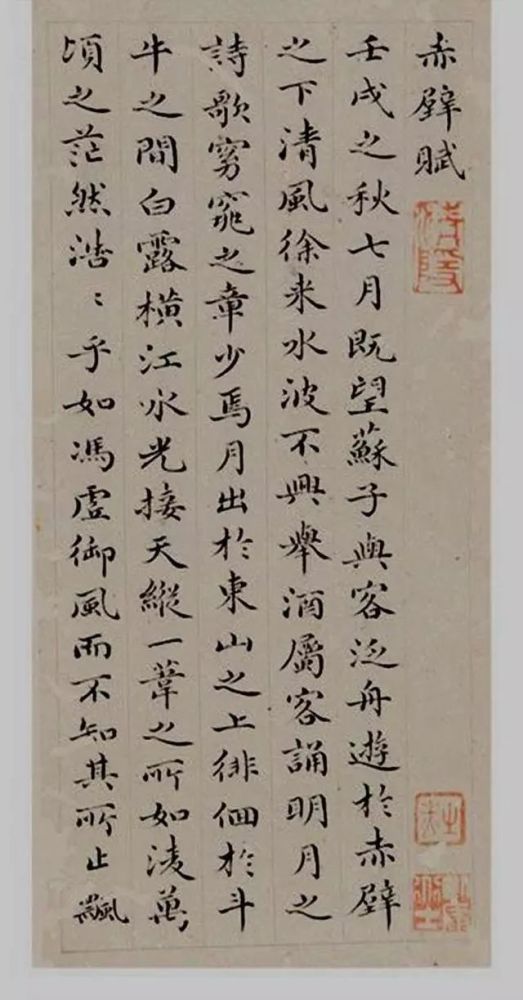 赤壁賦
壬戌之秋七月既望蘇子與客泛舟遊於赤壁
之下清風徐来水波不興舉酒屬客誦明月之
詩歌窈窕之章少焉月出於東山之上徘徊於斗
牛之間白露橫江水光接天縱一葦之所如淩萬
頃之茫然浩〻乎如馮虛御風而不知其所止飄